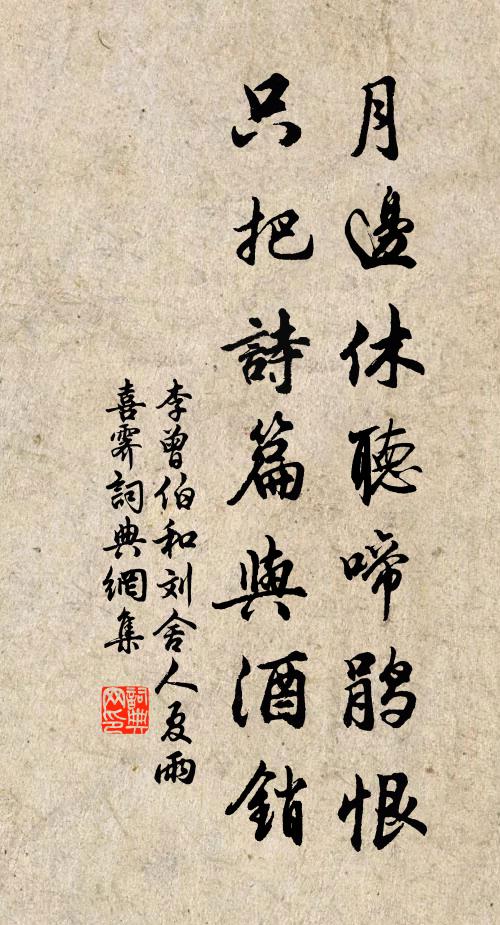 月邊休聽啼鵑恨
只把詩篇與酒銷
李曾伯和刘舍人夏雨
喜霁詞典網集
詞典
网印